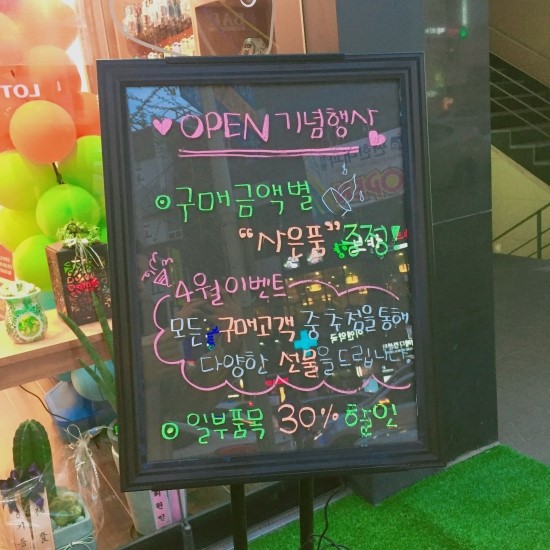 OPEN 기념행사
구매금액별
"사은품" 증정!
4월 이벤트
모든 구매고객 중 추첨을 통해
다양한 선물을 드립니다
일부품목 30% 할인
LOT